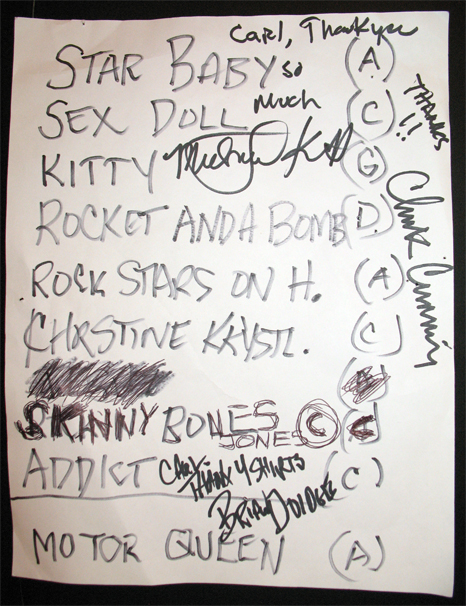 Carl, Thank you
STAR BABY (A)
so
much
SEX DOLL (C)
THANKS!!
KITTY (G)
ROCKET AND A BOMB (D)
Chuck
ROCK STARS ON H. (A)
CHRSTINE KRYSTL. (C)
SKINNY BONES
JONES (C)
ADDICT (C)
CARL
THANX 4 SHIRTS
BRIAN
MOTOR QUEEN (A)